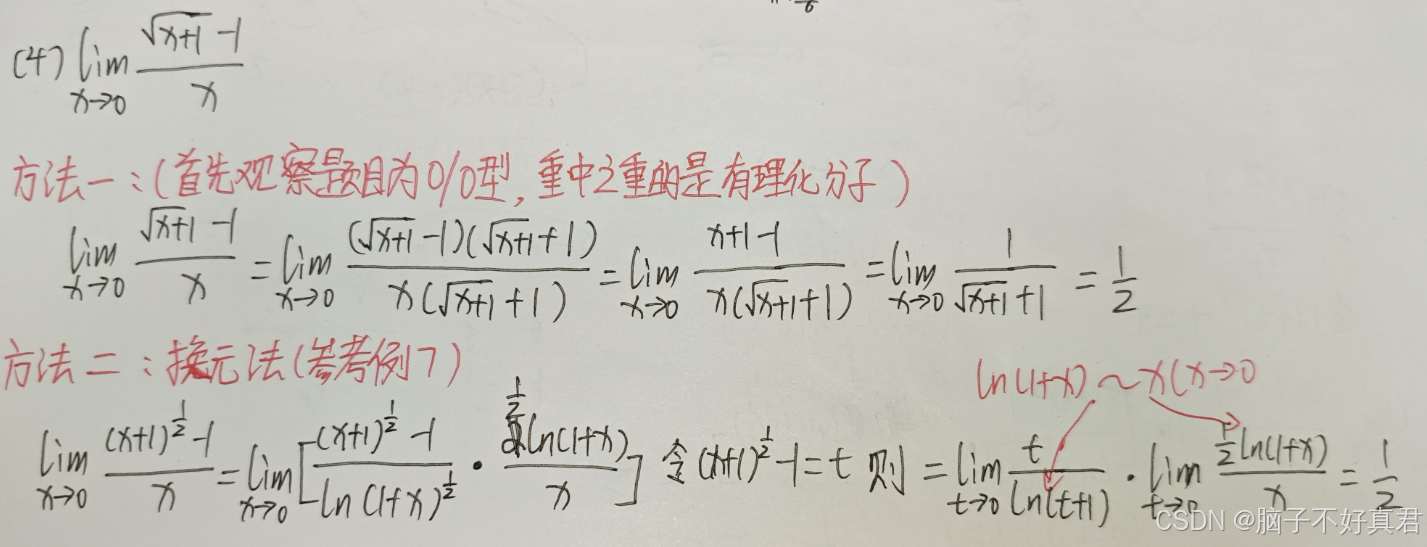 (4) lim x→0 (√(x+1) -1)/x
方法一:(首先观察题目为0/0型,重中之重的是有理化分子)
lim x→0 (√(x+1) -1)/x = lim x→0 ((√(x+1) -1)(√(x+1) +1))/(x(√(x+1) +1)) = lim x→0 (x+1-1)/(x(√(x+1) +1)) = lim x→0 1/(√(x+1) +1) = 1/2
方法二:换元法(参考例7)
ln(1+x) ~ x(x→0
lim x→0 ((x+1)^(1/2) -1)/x = lim x→0 [((x+1)^(1/2) -1)/(ln(1+x)^(1/2)) · (1/2 ln(1+x))/x] 令(x+1)^(1/2) -1=t 则 = lim t→0 t/(ln(t+1)) · lim t→0 (1/2 ln(1+x))/x = 1/2
CSDN @脑子不好真君